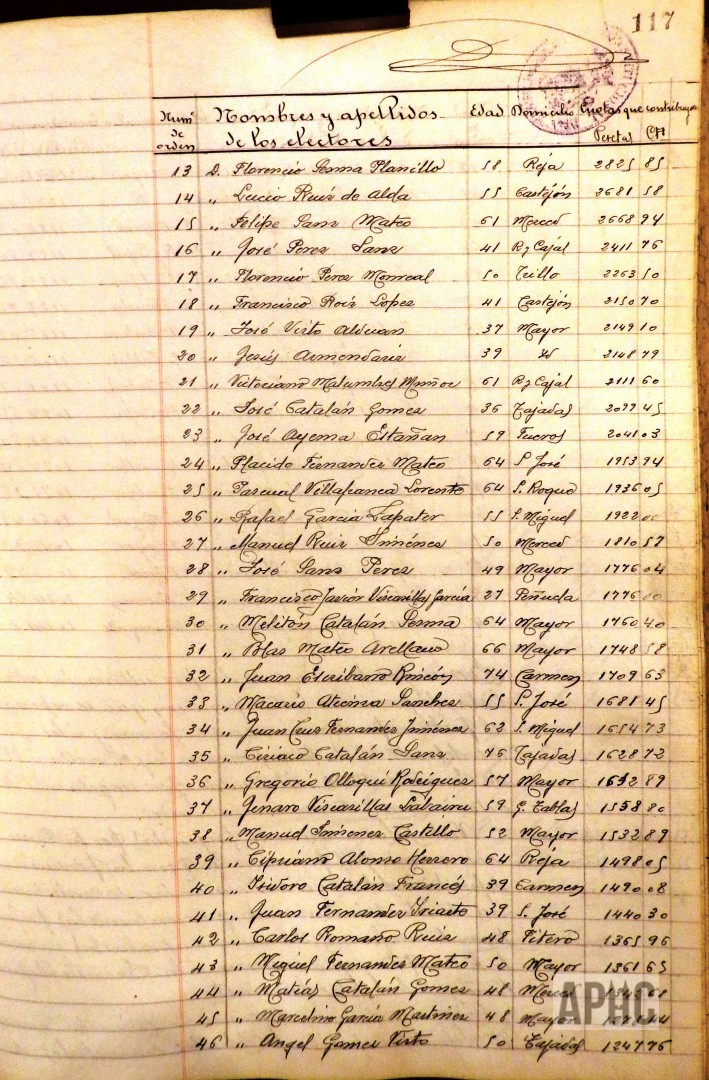 117
Num de orden Nombres y apellidos de los electores Edad Domicilio Cuotas que contribuyen Pesetas Cts
13 D. Florencio Sesma Plancillo 58 Reja 2825 85
14 " Lucio Ruiz de Alda 55 Castejón 2681 58
15 " Felipe Sanz Mateo 61 Merced 2668 94
16 " José Perez Sanz 41 R y Cajal 2411 76
17 " Florencio Perez Monreal 50 Trillo 2263 50
18 " Francisco Roiz Lopez 41 Castejón 2150 70
19 " José Virto Alduan 37 Mayor 2149 10
20 " Jesús Armendariz 39 Id 2148 79
21 " Victoriano Malumbres Muñoz 61 R y Cajal 2111 60
22 " José Catalán Gomez 36 Tajadas 2077 45
23 " José Ayensa Estañan 59 Fueros 2041 03
24 " Placido Fernandez Mateo 64 S. José 1953 94
25 " Pascual Villafranca Lorente 64 S. Roque 1936 05
26 " Rafael Garcia Zapater 55 S. Miguel 1922 00
27 " Manuel Ruiz Jiménez 50 Merced 1810 57
28 " José Sanz Perez 49 Mayor 1776 04
29 " Francisco Javier Viscasillas Garcia 27 Peñuela 1776 00
30 " Melitón Catalán Sesma 64 Mayor 1760 40
31 " Blas Mateo Arellano 66 Mayor 1748 58
32 " Juan Escribano Rincón 74 Carmen 1709 63
33 " Macario Atienza Sanchez 55 S. José 1681 45
34 " Juan Cruz Fernandez Jiménez 62 S. Miguel 1654 73
35 " Ciriaco Catalán Sanz 76 Tajadas 1628 72
36 " Gregorio Olloqui Rodriguez 57 Mayor 89
37 " Jenaro Viscasillas 59 G. Tablas 1558 80
38 " Manuel Jimenez Castillo 52 Mayor 1532 89
39 " Cipriano Alonso Herrero 64 Reja 1498 05
40 " Isidoro Catalán Francés 39 Carmen 1490 08
41 " Juan Fernandez Iriarte 39 S. José 1440 30
42 " Carlos Romano Ruiz 48 Fitero 1365 96
43 " Miguel Fernandez Mateo 50 Mayor 1361 65
44 " Matías Catalán Gomez 48
45 " Marcelino Garcia Martinez 48 Mayor
46 " Angel Gomez Virto 50 Tajadas 1247 76
APHC